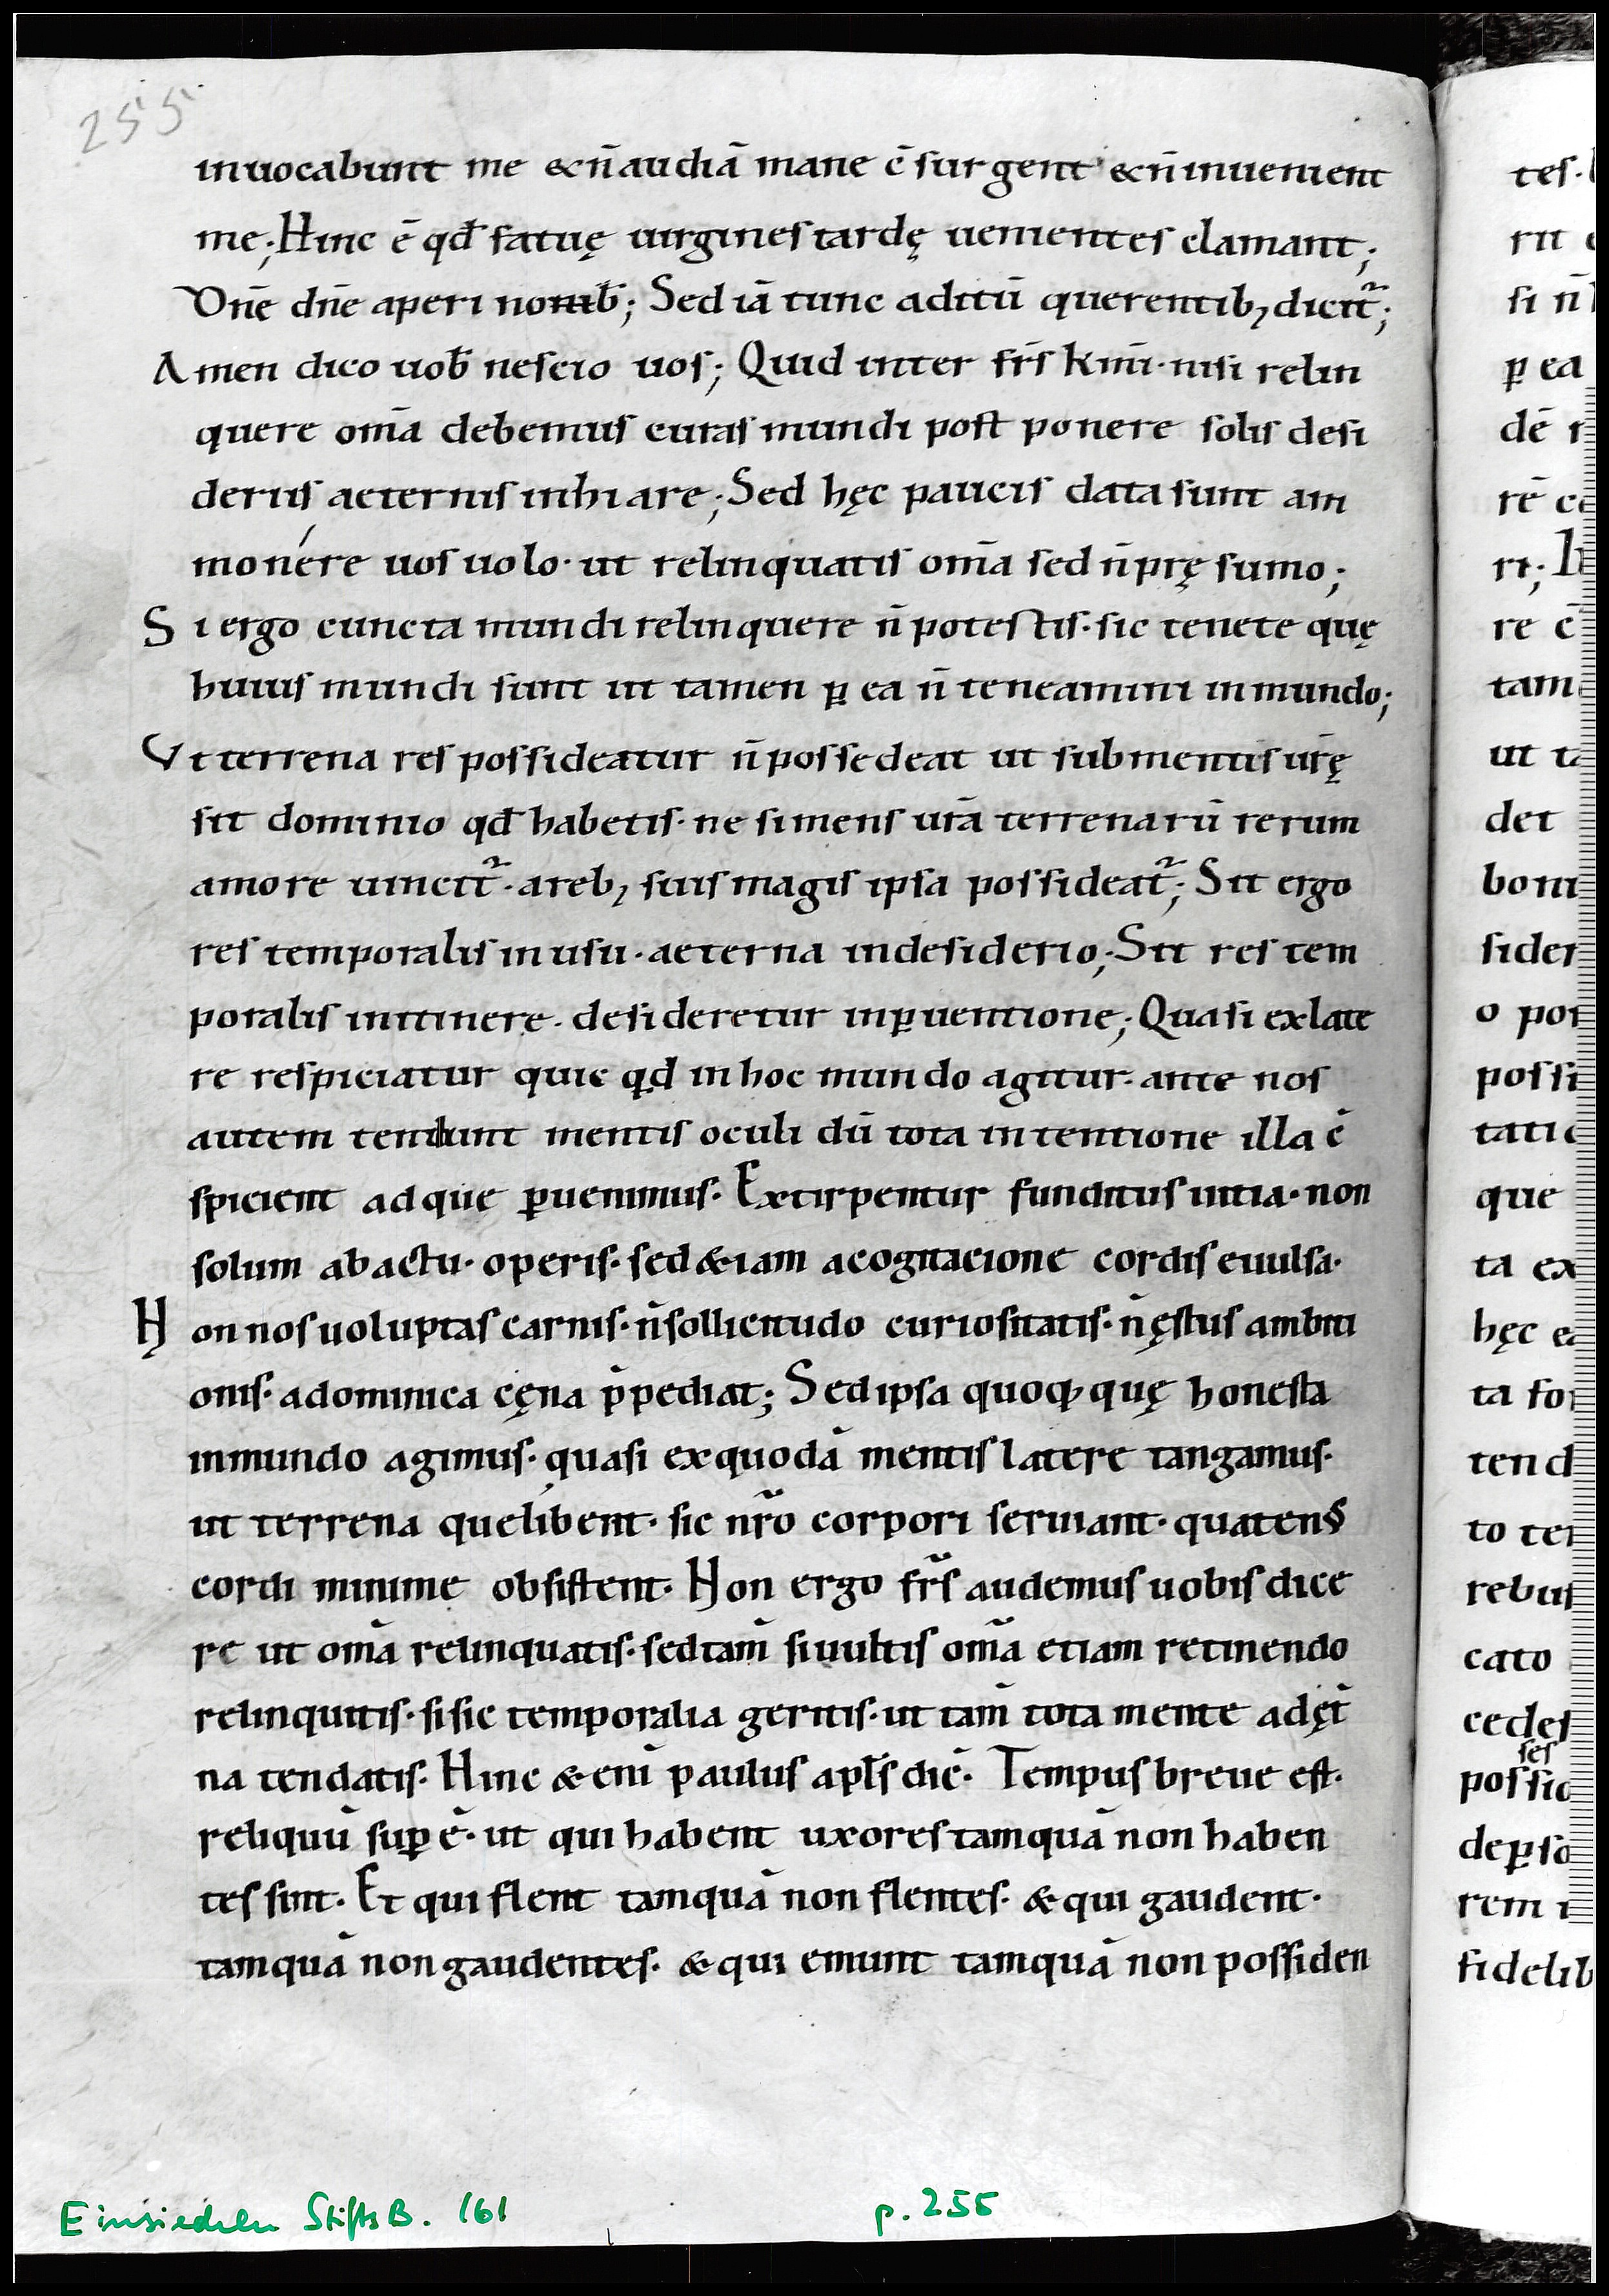 255
inuocabunt me &n̄ audiā mane c̄ surgent &n̄ inuenient
me; Hinc ē qd̄ fatuę uirgines tardę uenientes clamant;
Dn̄e dn̄e aperi nobib̄; Sed iā tunc aditū querentib; dicit᷑;
Amen dico uob̄ nescio uos; Quid inter fr̄s kīmi · nisi relin
quere om̄a debemus curas mundi post ponere solis desi
deriis aeternis inhiare; Sed hęc paucis data sunt am
monére uos uolo · ut relinquatis om̄a sed n̄ pręsumo;
Si ergo cuncta mundi relinquere n̄ potestis · sic tenete quę
huius mundi sunt ut tamen ꝑ ea n̄ teneamini in mundo;
Ut terrena res possideatur n̄ possedeat ut sub mentis ur̄ę
sit dominio qd̄ habetis · ne si mens ur̄a terrenarū rerum
amore uincit᷑ · a reb; suis magis ipsa possideat᷑; Sit ergo
res temporalis in usu · aeterna in desiderio; Sit res tem
poralis in itinere · desideretur in ꝑuentione; Quasi ex late
re respiciatur quic qd in hoc mundo agitur · ante nos
autem tendunt mentis oculi dū tota intentione illa c̄
spicient ad que ꝑuenimus · Extirpentur funditus uitia · non
solum ab actu · operis · sed &iam a cogitacione cordis euulsa ·
Non nos uoluptas carnis · n̄ sollicitudo curiositatis · n̄ ęstus ambiti
onis · a dominica cęna p̄pediat; Sed ipsa quoq; quę honesta
in mundo agimus · quasi ex quodā mentis latere tangamus ·
ut terrena quelibent · sic nr̄o corpori seruiant · quatens
cordi minime obsistent · Non ergo fr̄s audemus uobis dice
re ut om̄a relinquatis · sed tam̄ si uultis om̄a etiam retinendo
relinquitis · si sic temporalia geritis · ut tam̄ tota mente ad ęt̄
na tendatis · Hinc &enī paulus apl̄s dic̄ · Tempus breue est ·
reliquū suꝑ ē · ut qui habent uxores tamquā non haben
tes sint · Et qui flent tamquā non flentes · & qui gaudent ·
tamquā non gaudentes · & qui emunt tamquā non possiden
tes ·
rit
si n̄
ꝑ ea
dē
rē
ri;
re c̄
tam
ut
det
boni
sider
o pos
possi
tati
que
ta ex
hęc
ta
tend
to
rebus
cato
cedes
ses
possid
deꝑ
rem
fidelib
Einsiedeln StiftsB. 161 p. 255